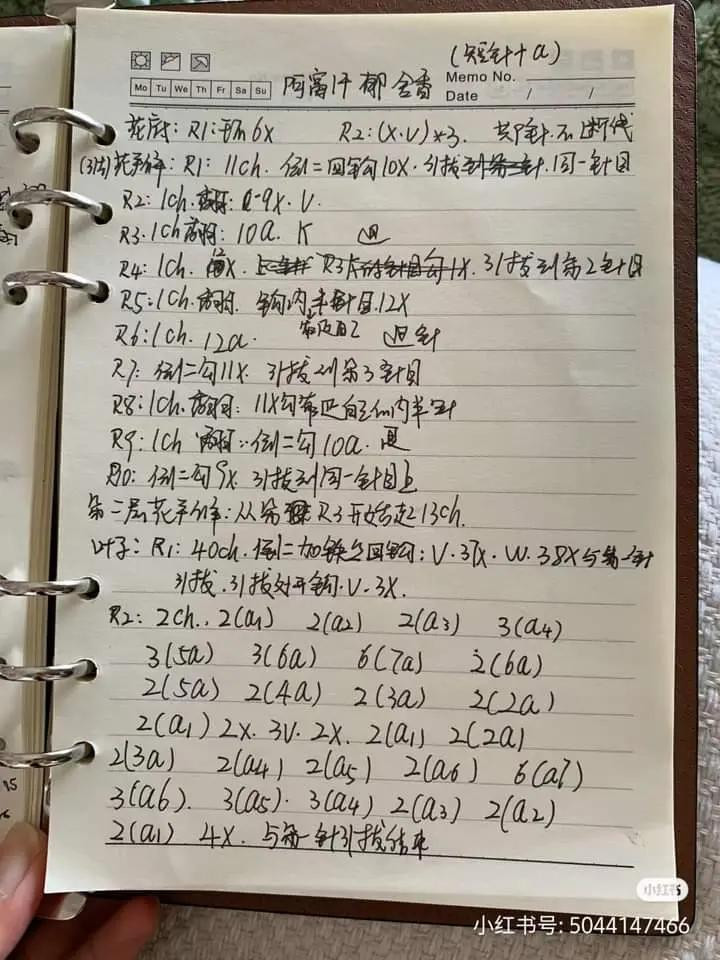 (短针+a)
Memo No.
Mo Tu We Th Fr Sa Su
阿富汗郁金香
Date / /
花底: R1: 环6x R2: (x.v)*3. 共9针.不断线
(3片)花瓣: R1: 11ch. 倒二回钩10x. 引拔到第一针.同一针目
R2: 1ch. 翻面: 9x. V.
R3. 1ch翻面: 10a. K
R4: 1ch. x. R3 勾1x. 引拔到第2针目
R5: 1ch. 翻面. 钩内半针目.12x
R6: 1ch. 12a. 靠近自己
R7: 倒二勾11x. 引拔到第3针目
R8: 1ch.翻面: 11x勾靠近自己的内半针
R9: 1ch 翻面: 倒二勾10a.
R10: 倒二勾9x. 引拔到同一针目上
第二层花瓣: 从第 R3开始起13ch.
叶子: R1: 40ch. 倒二 回钩: V.37x. W. 38x与第一针
引拔.引拔对开钩.V.3x.
R2: 2ch. 2(a1) 2(a2) 2(a3) 3(a4)
3(5a) 3(6a) 6(7a) 2(6a)
2(5a) 2(4a) 2(3a) 2(2a)
2(a1) 2x. 3v. 2x. 2(a1) 2(2a)
2(3a) 2(a4) 2(a5) 2(a6) 6(a7)
3(a6). 3(a5). 3(a4) 2(a3) 2(a2)
2(a1) 4x. 与第一针引拔结束
小红书
小红书号: 5044147466